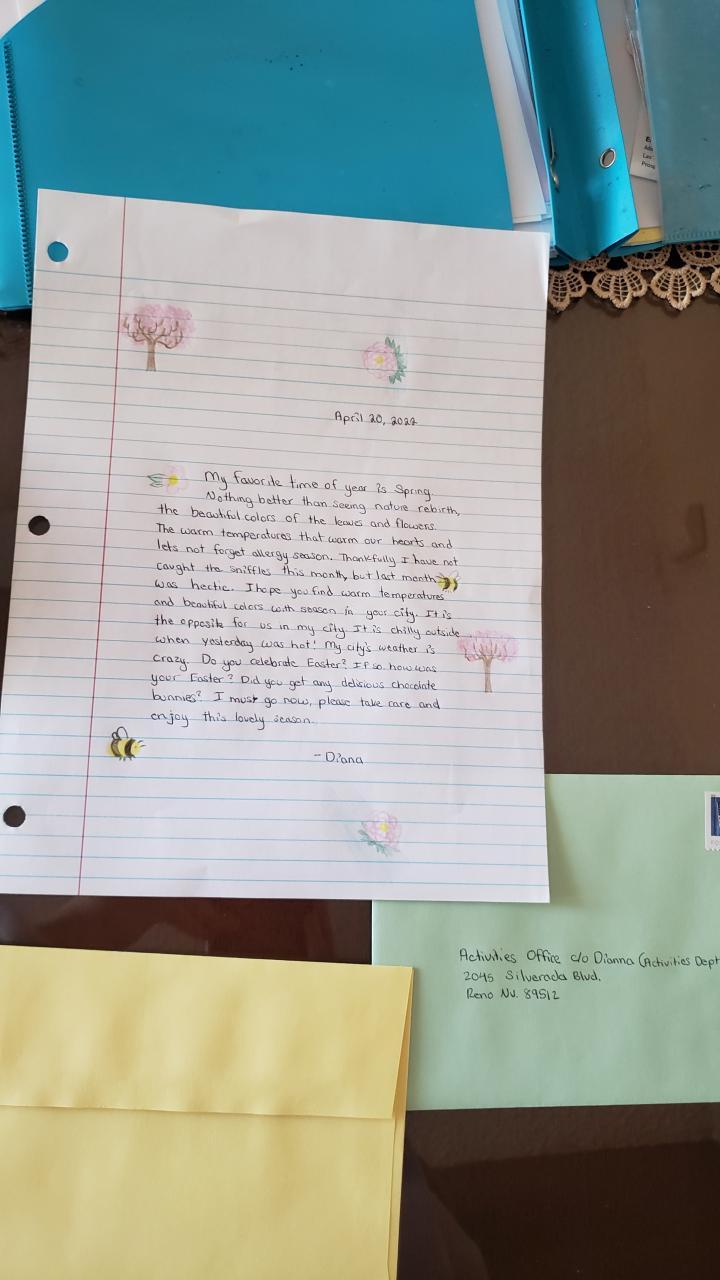 April 20, 2022
My favorite time of year is Spring.
Nothing better than seeing nature rebirth,
the beautiful colors of the leaves and flowers.
The warm temperatures that warm our hearts and
lets not forget allergy season. Thankfully I have not
caught the sniffles this month, but last month
was hectic. I hope you find warm temperatures
and beautiful colors with season in your city. It is
the opposite for us in my city. It is chilly outside
when yesterday was hot! My city's weather is
crazy. Do you celebrate Easter? If so, how was
your Easter? Did you get any delicious chocolate
bunnies? I must go now, please take care and
enjoy this lovely season.
- Diana
Activities Office c/o Dianna (Activities Dept
2045 Silverada Blvd.
Reno Nv. 89512